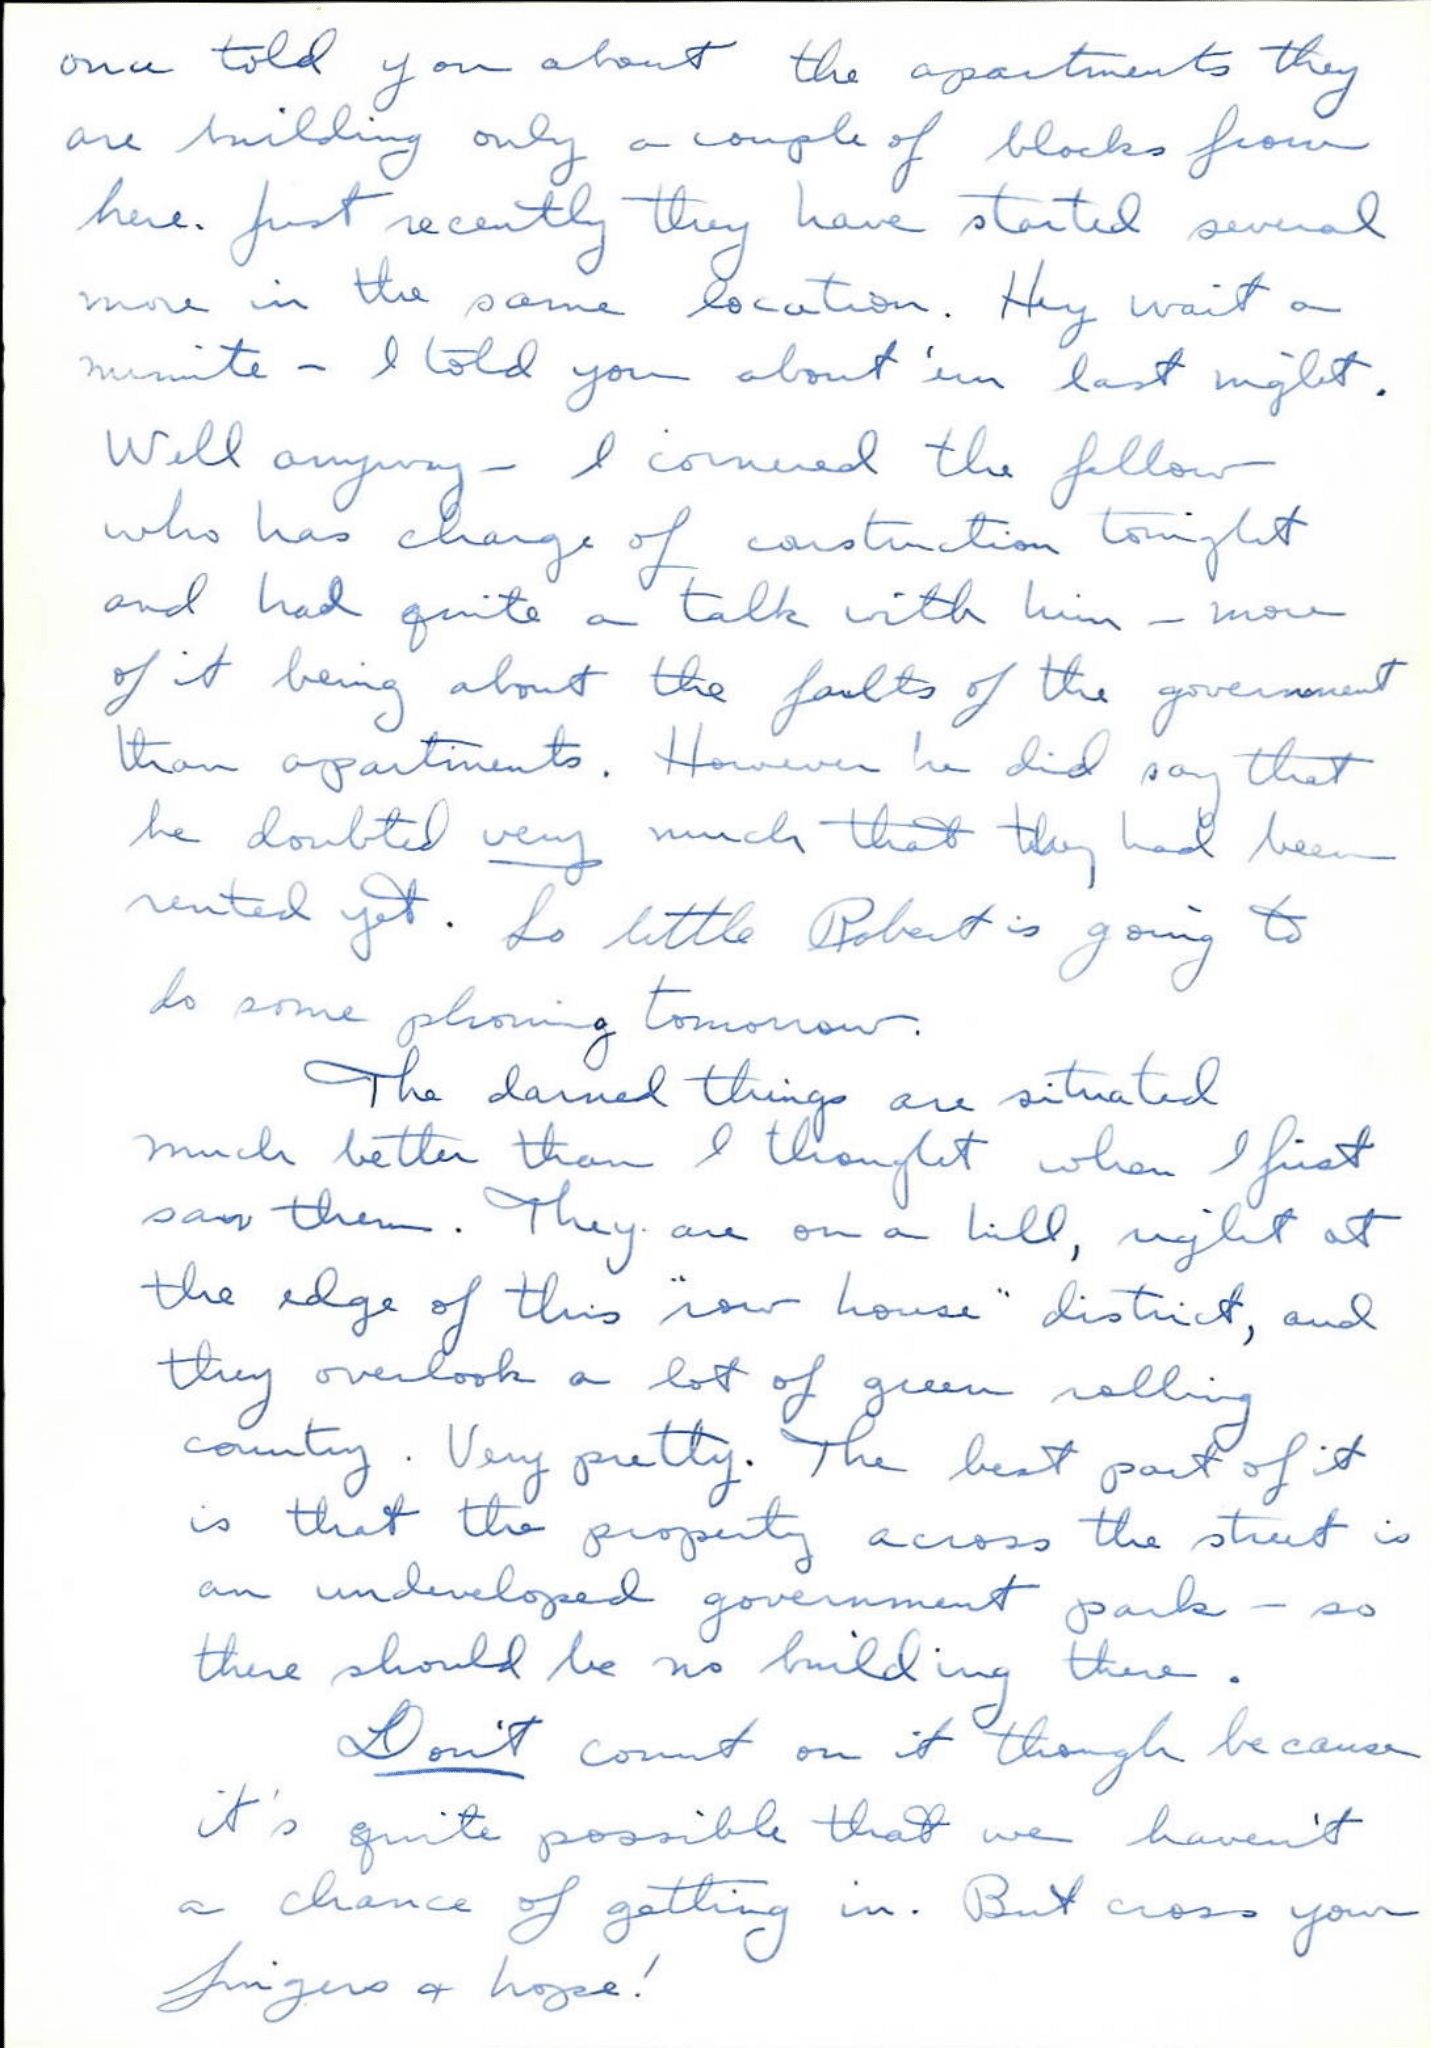 once told you about the apartments they
are building only a couple of blocks from
here. Just recently they have started several
more in the same location. Hey wait a
minute - I told you about 'em last night.
Well anyway - I cornered the fellow
who has charge of construction tonight
and had quite a talk with him - more
of it being about the faults of the government
than apartments. However he did say that
he doubted very much that they had been
rented yet. So little Robert is going to
do some phoning tomorrow.
The darned things are situated
much better than I thought when I first
saw them. They are on a hill, right at
the edge of this "row house" district, and
they overlook a lot of green rolling
country. Very pretty. The best part of it
is that the property across the street is
an undeveloped government park - so
there should be no building there.
Don't count on it though because
it's quite possible that we haven't
a chance of getting in. But cross your
fingers & hope!